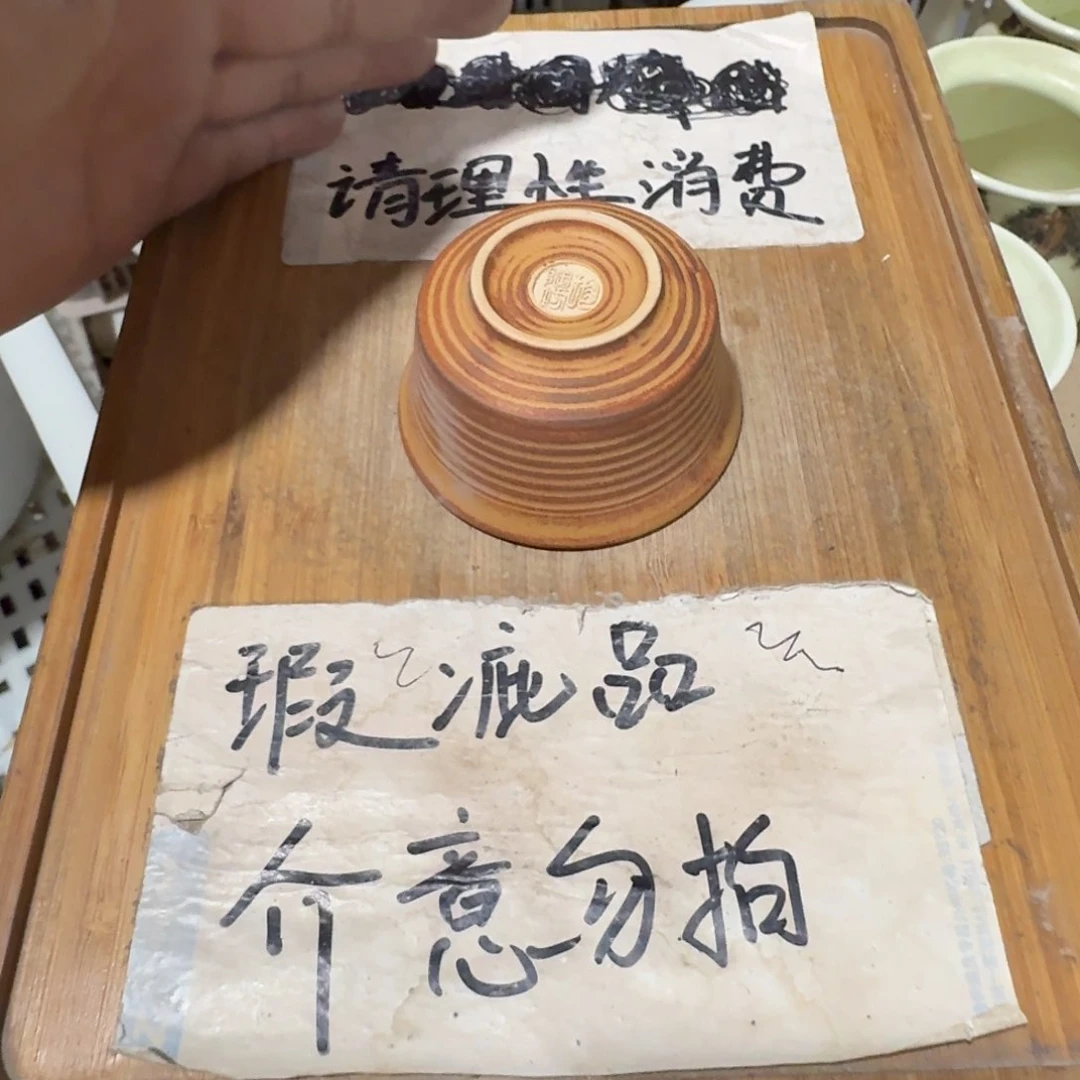 请理性消费
瑕疵品
介意勿拍